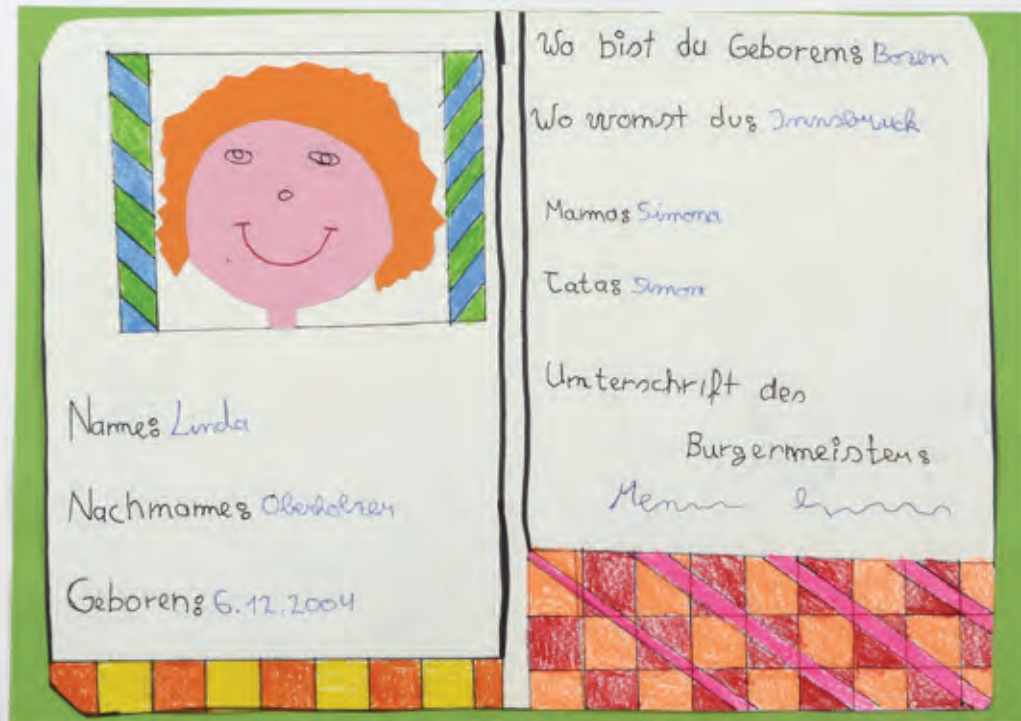 Name: Linda
Nachname: Oberholzer
Geboren: 6.12.2004
Wo bist du Geboren: Bozen
Wo wonst du: Innsbruck
Mama: Simona
Tata: Simon
Unterschrift des
Burgermeisters